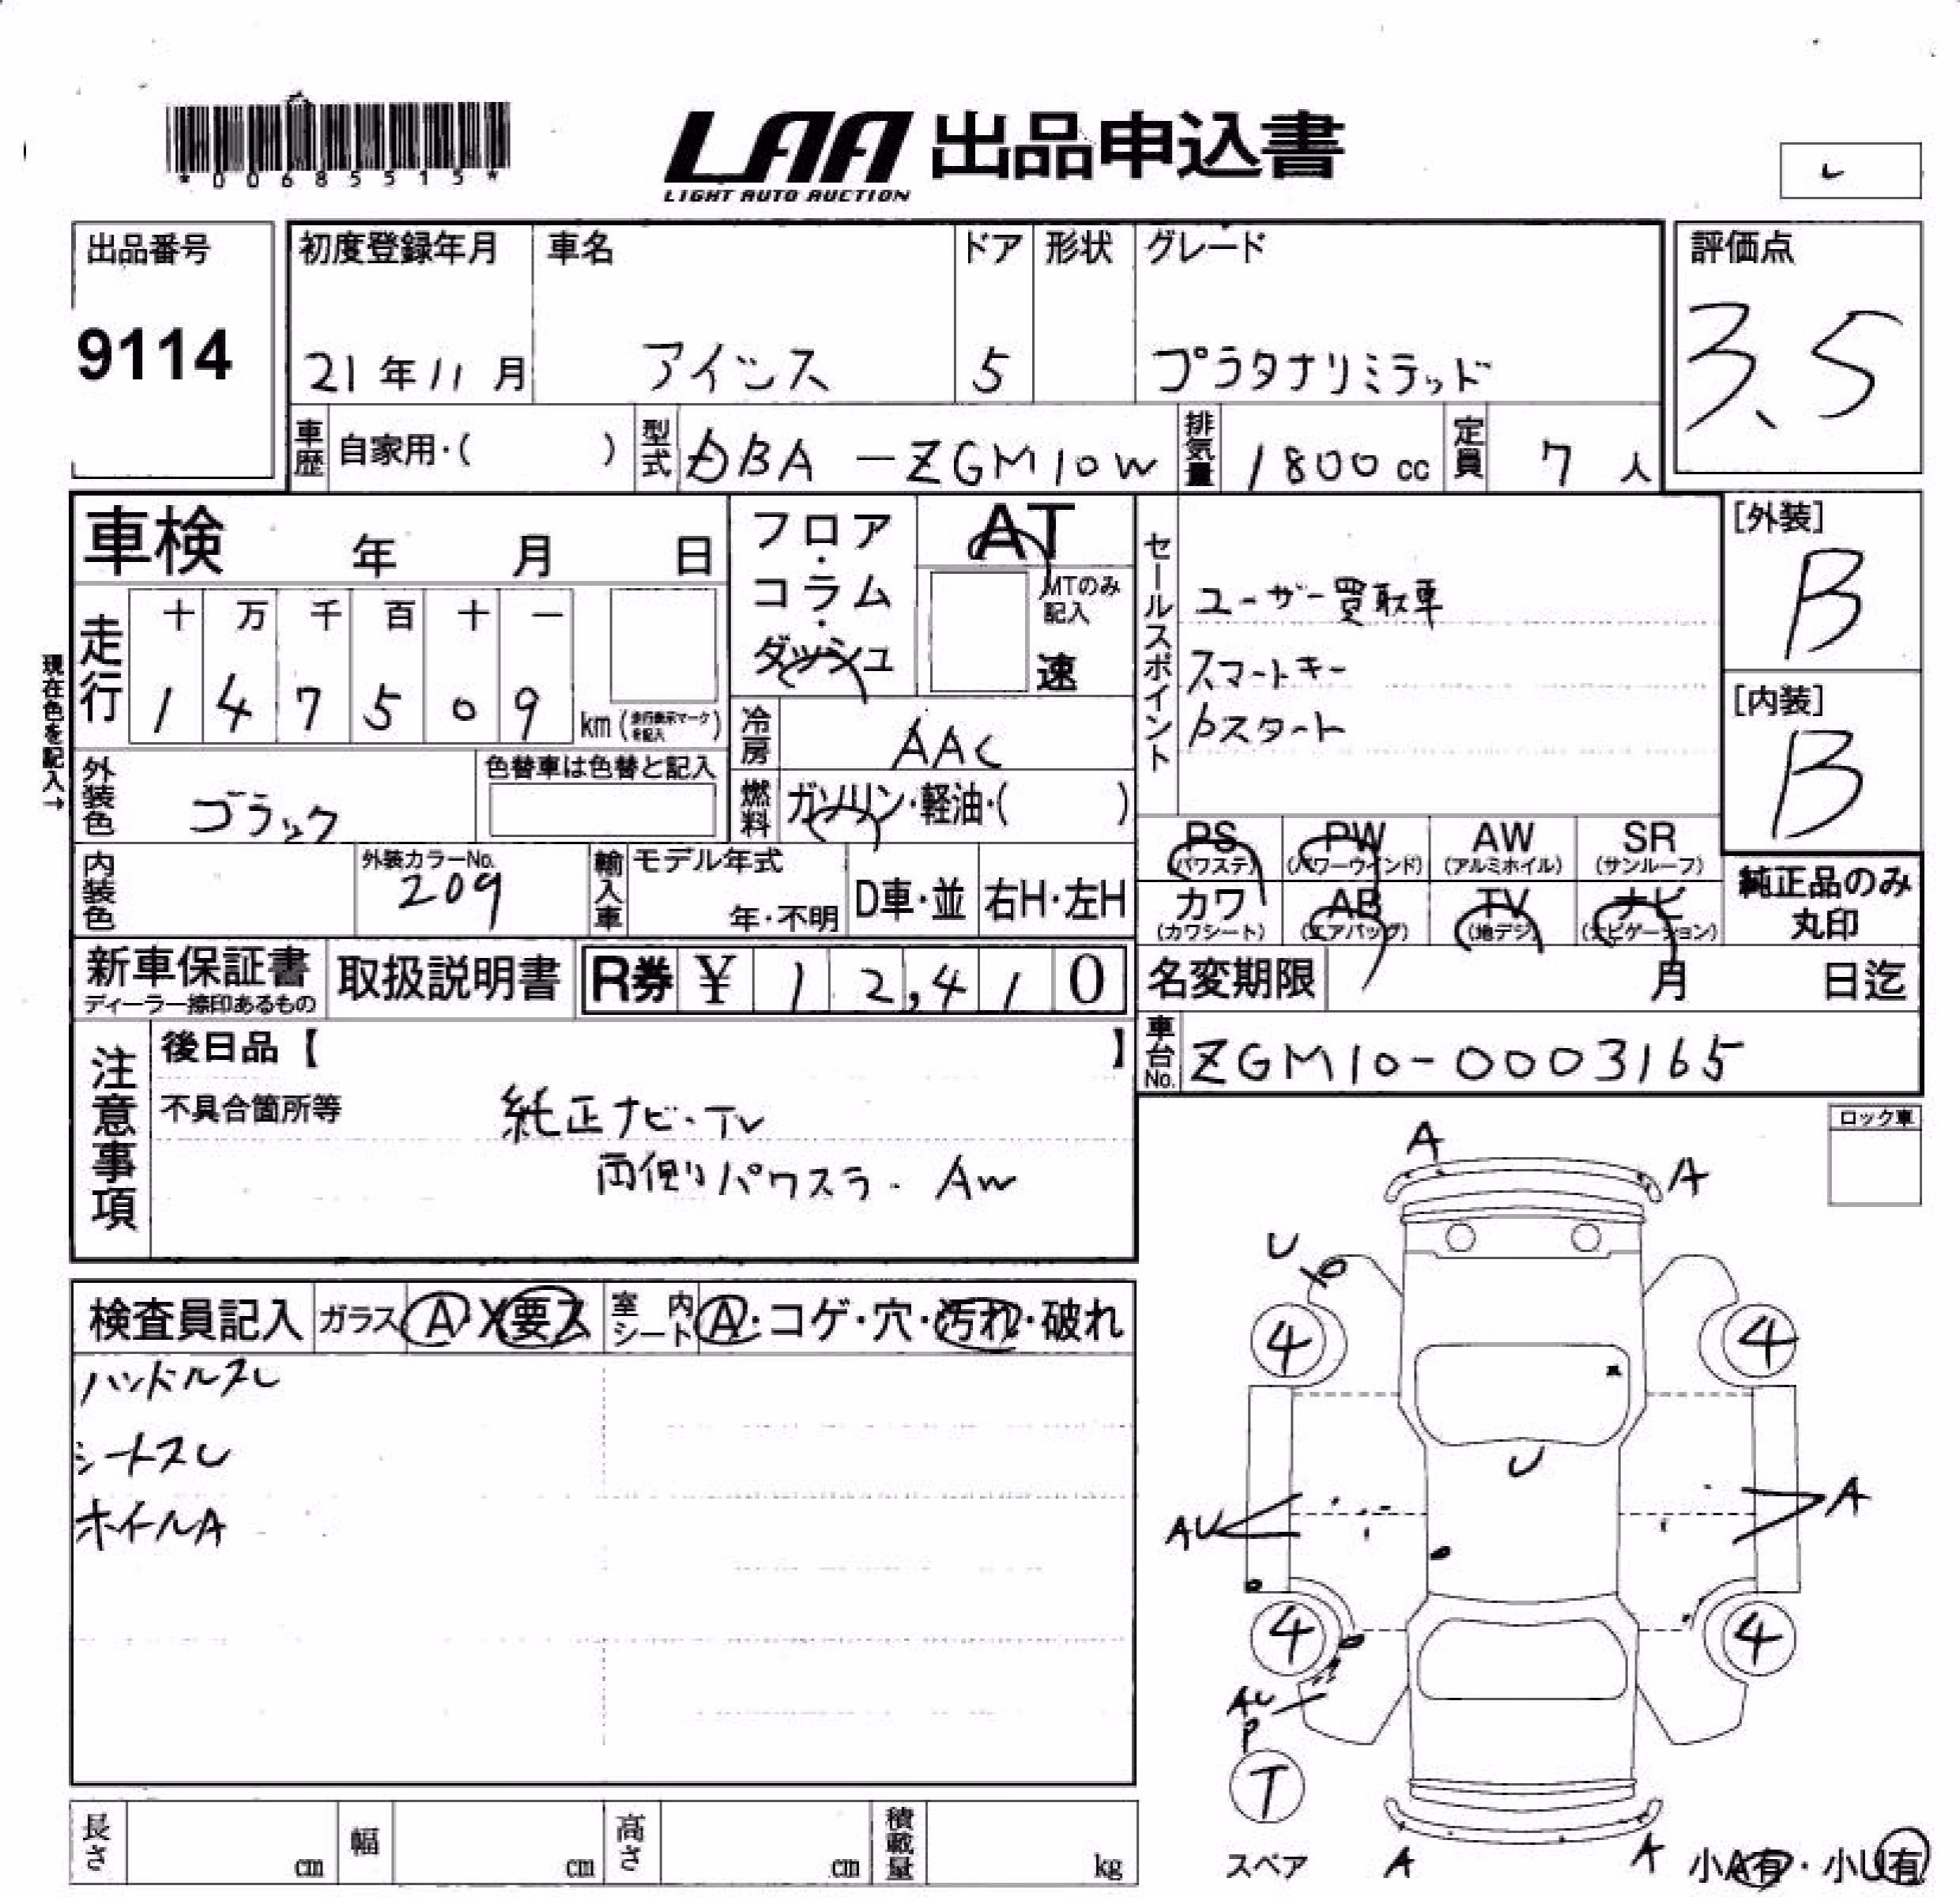 *00685515*
LAA 出品申込書
LIGHT AUTO AUCTION
レ
出品番号
9114
初度登録年月
21年11月
車名
アイシス
ドア
5
形状
グレード
プラタナリミテッド
評価点
3.5
車歴 自家用・( )
型式 DBA-ZGM10W
排気量 1800cc
定員 7人
車検 年 月 日
フロア・コラム・ダッシュ
AT
MTのみ記入
速
セールスポイント
ユーザー買取車
スマートキー
Pスタート
[外装]
B
[内装]
B
現在色を記入→
走行
十 万 千 百 十 一
1 4 7 5 0 9 km (走行表示マークを記入)
冷房 AAC
外装色 ブラック
色替車は色替と記入
燃料 ガソリン・軽油・( )
PS (パワステ)
PW (パワーウインド)
AW (アルミホイル)
SR (サンルーフ)
カワ (カワシート)
AB (エアバッグ)
TV (地デジ)
ナビ (ナビゲーション)
純正品のみ丸印
内装色
外装カラーNo.
209
輸入車 モデル年式
年・不明
D車・並
右H・左H
新車保証書
ディーラー捺印あるもの
取扱説明書
R券 ¥ 12,410
名変期限 月 日迄
車台No. ZGM10-0003165
注意事項
後日品【 】
不具合箇所等
純正ナビ・TV
両側パワスラ・AW
ロック車
検査員記入
ガラス A・X 要ス
室内シート A・コゲ・穴・汚れ・破れ
ハンドルスレ
シートスレ
ホイルA
A
A
U
4
4
U
AU
A
4
4
AU
P
T
スペア
A
A
小A有・小U有
長さ cm
幅 cm
高さ cm
積載量 kg